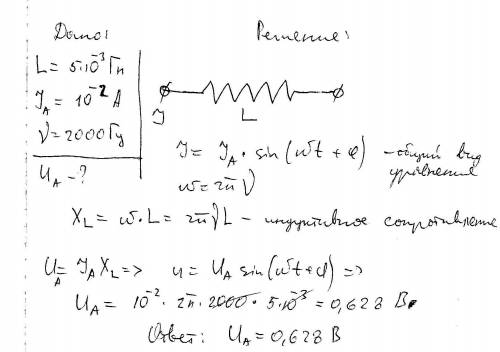 Дано:
Решение:
L = 5·10⁻³ Гн
J_A = 10⁻² А
ν = 2000 Гц
U_A - ?
J
L
J = J_A · sin(ωt + φ) - общий вид
уравнения
ω = 2π ν
X_L = ω·L = 2πνL - индуктивное сопротивление
U_A = J_A X_L => u = U_A sin(ωt+φ) =>
U_A = 10⁻² · 2π · 2000 · 5·10⁻³ = 0,628 В.
Ответ: U_A = 0,628 В